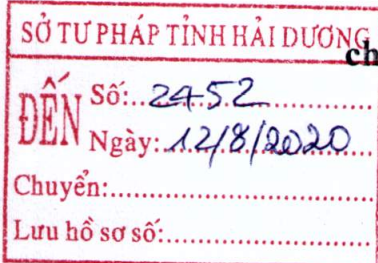 SỞ TƯ PHÁP TỈNH HẢI DƯƠNG
ch
ĐẾN
Số:..2452................
Ngày:.12/8/2020
Chuyển:.............................
Lưu hồ sơ số:......................